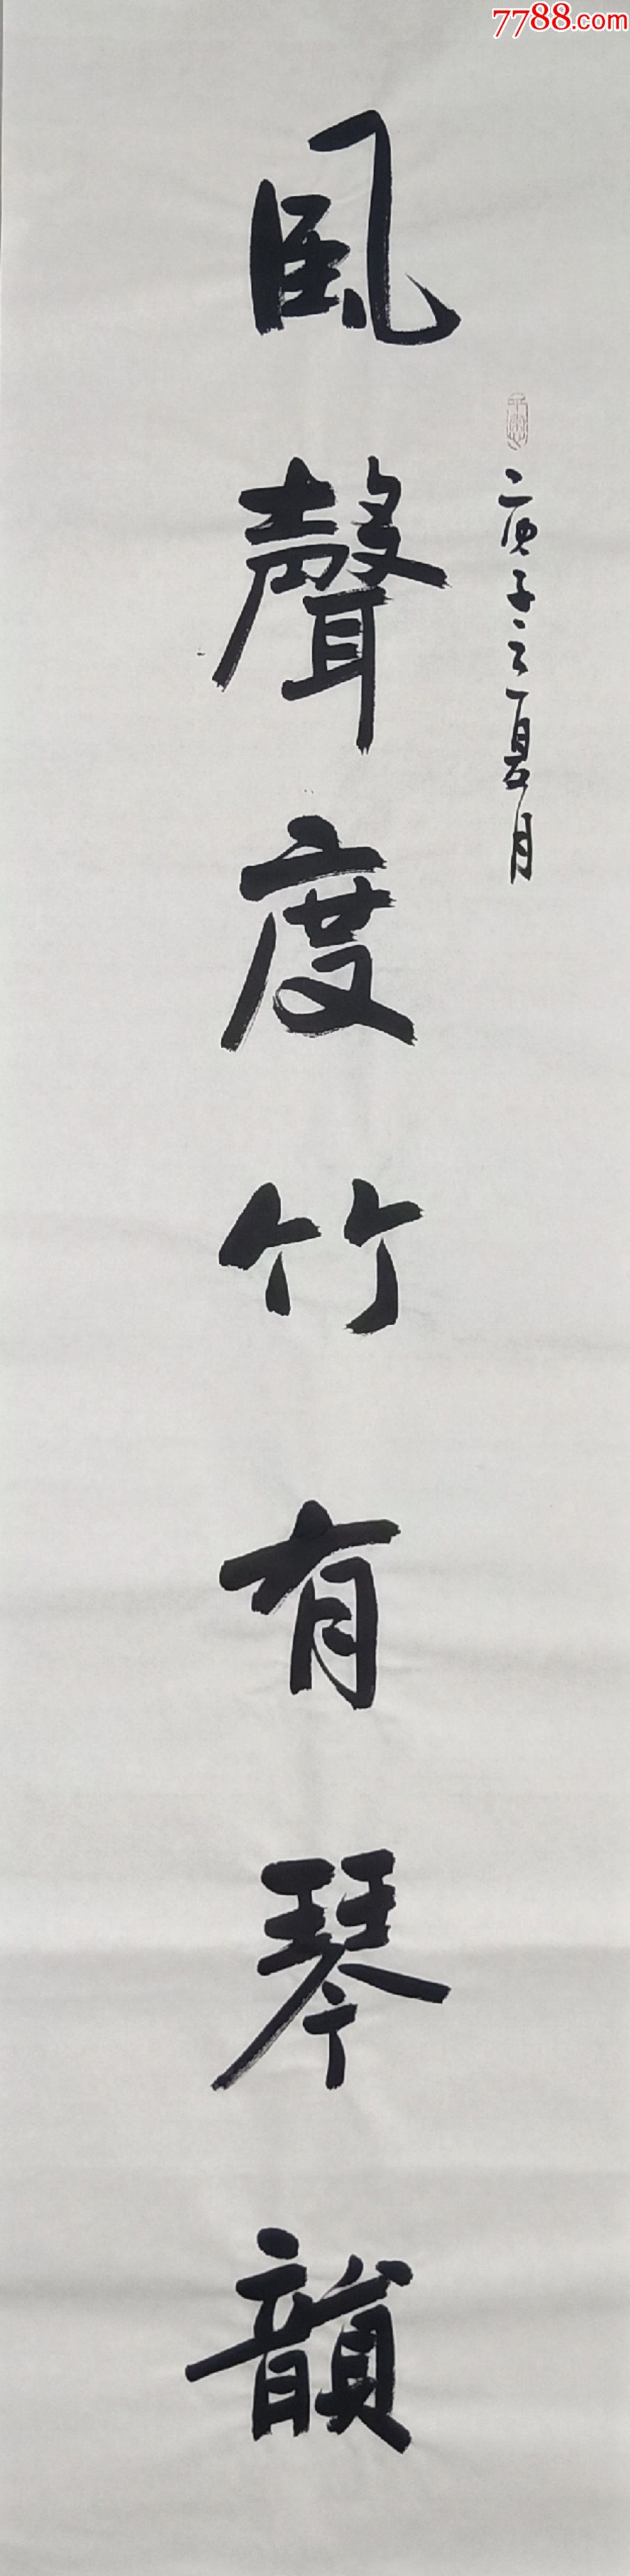 7788.com
庚子之夏月
風聲度竹有琴韻